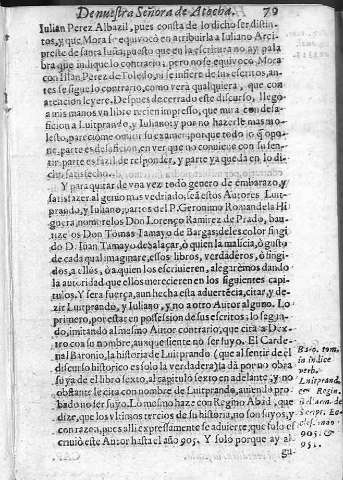 De nuestra Señora de Atocha. 79
Iulian Perez Albazil, pues consta de lo dicho ser distin-
tos, y que Mora se equiuocò en atribuirla a Iuliano Arci
preste de santa Iusta, puesto que en la escritura no ay pala
bra que indique lo contrario; pero no se equiuocò Mora
con Iulian Perez de Toledo, ni se infiere de sus escritos, an-
tes se sigue lo contrario, como verà qualquiera, que con
atencion leyere. Despues de cerrado este discurso, llegò
a mis manos vn libro recien impresso, que mira con desa-
ficion a Luitprando, y Iuliano; y por no hazerle mas mo-
lesto, parecióme omitir su examen: porque todo lo q̃ opo-
ne, parte es desaficion, en ver que no conuiene con su sen-
tir, parte es facil de responder, y parte ya queda en lo di-
cho satisfecho.
Y para quitar de vna vez todo genero de embarazo, y
satisfazer al genio mas vedriado, seã estos Autores Luit-
prando, y Iuliano, partes del P. Geronimo Roman de la Hi
guera, nombrelos Don Lorenço Ramirez de Prado, bau-
tize los Don Tomas Tamayo de Bargas; deles color fingi
do D. Iuan Tamayo de Salaçar, ò quien la malicia, ò gusto
de cada qual imaginare, essos libros, verdaderos, ò fingi-
dos, a ellos, ò a quien los escriuieren, alegarèmos dando
la autoridad que ellos merecieren en los siguientes capi-
tulos. Y serà fuerça, aun hecha esta aduertẽcia, citar, y de-
zir Luitprando, y Iuliano, y no a otro Autor alguno. Lo
primero, por estar en possession de sus escritos; lo segun-
do, imitando al mesmo Autor contrario, que cita a Dex-
tro con su nombre, aunque siente no ser suyo. El Carde-
nal Baronio, la historia de Luitprando (que al sentir de el
discurso historico es solo la verdadera) la dà por no obra
suya de el libro sexto, al capitulo sexto en adelante, y no
obstante le cita con nombre de Luitprando, auiendo pro
bado no ser suyo. Lo mesmo haze con Regino Abad, que
dize, que los vltimos tercios de su historia, no son suyos, y
con razon, pues alli expressamente se aduierte, que solo es
criuiò este Autor hasta el año 905. Y solo porque ay al
gu-
Baro. tom.
in indice
verb.
Luitprand.